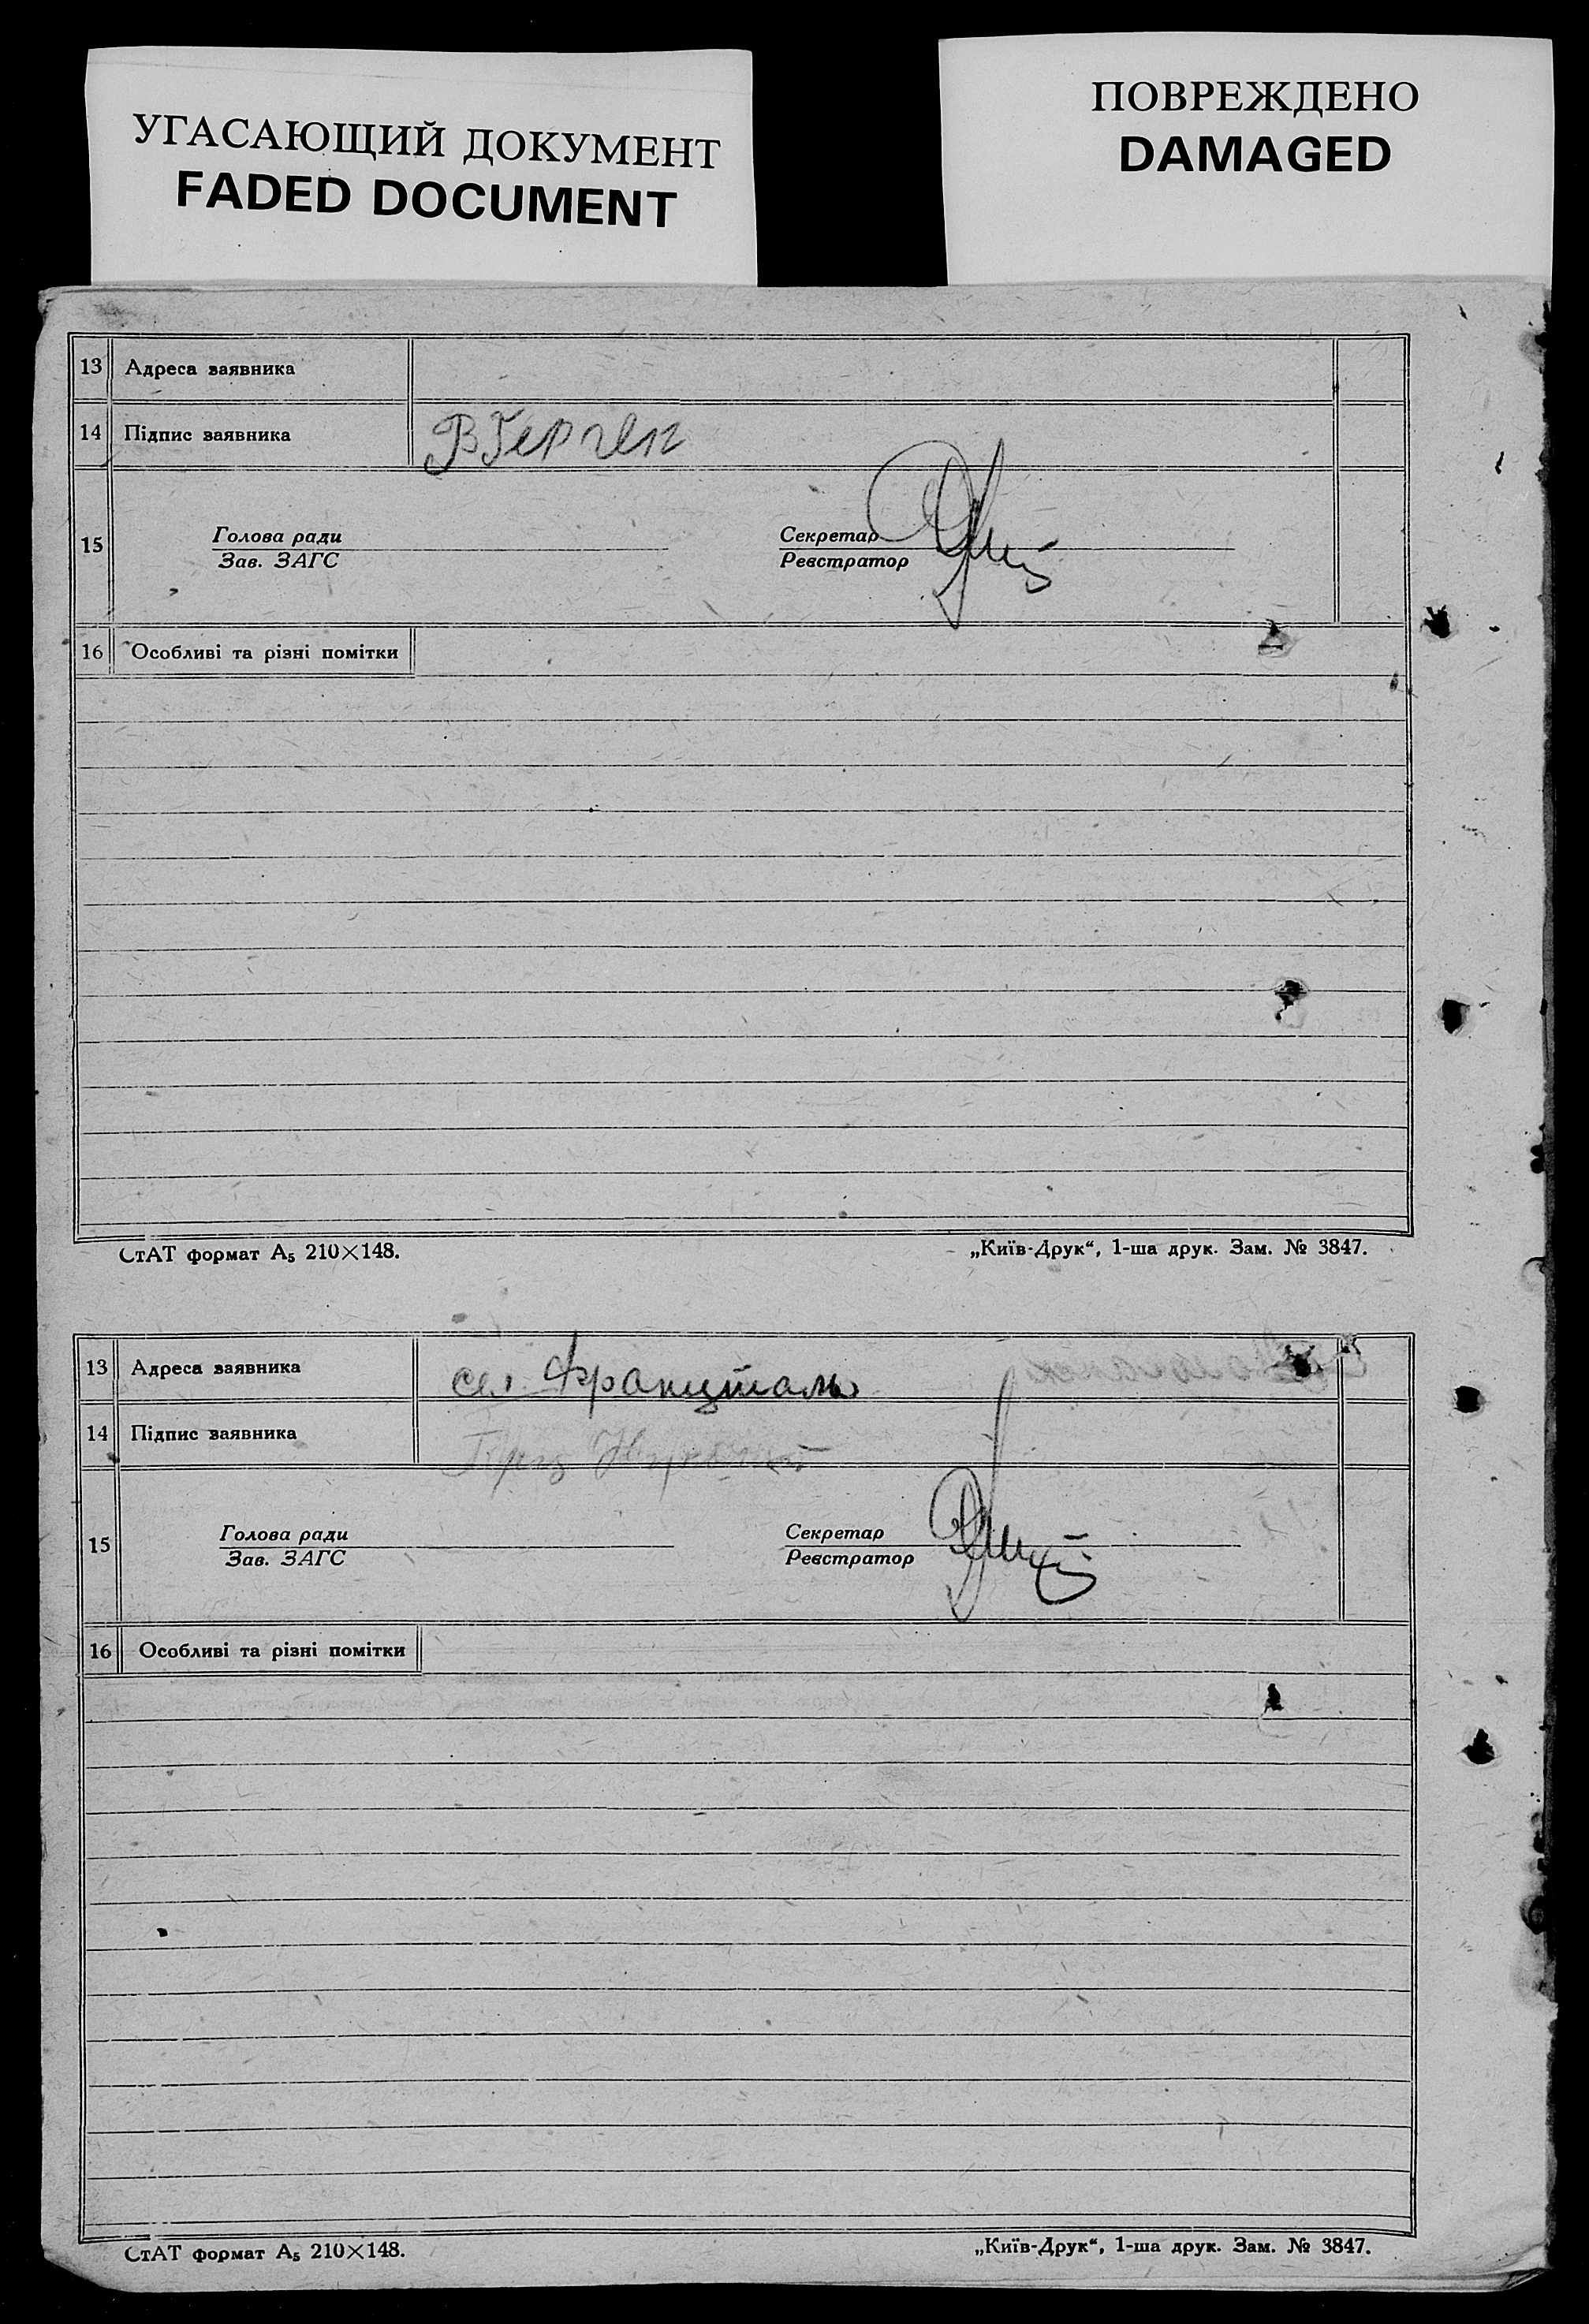 УГАСАЮЩИЙ ДОКУМЕНТ
FADED DOCUMENT
ПОВРЕЖДЕНО
DAMAGED
13 Адреса заявника
14 Підпис заявника ВГерген
15 Голова ради Секретар
Зав. ЗАГС Реєстратор
16 Особливі та різні помітки
СтАТ формат А5 210×148. „Київ-Друк“, 1-ша друк. Зам. № 3847.
13 Адреса заявника сел Францталь
14 Підпис заявника
15 Голова ради Секретар
Зав. ЗАГС Реєстратор
16 Особливі та різні помітки
СтАТ формат А5 210×148. „Київ-Друк“, 1-ша друк. Зам. № 3847.